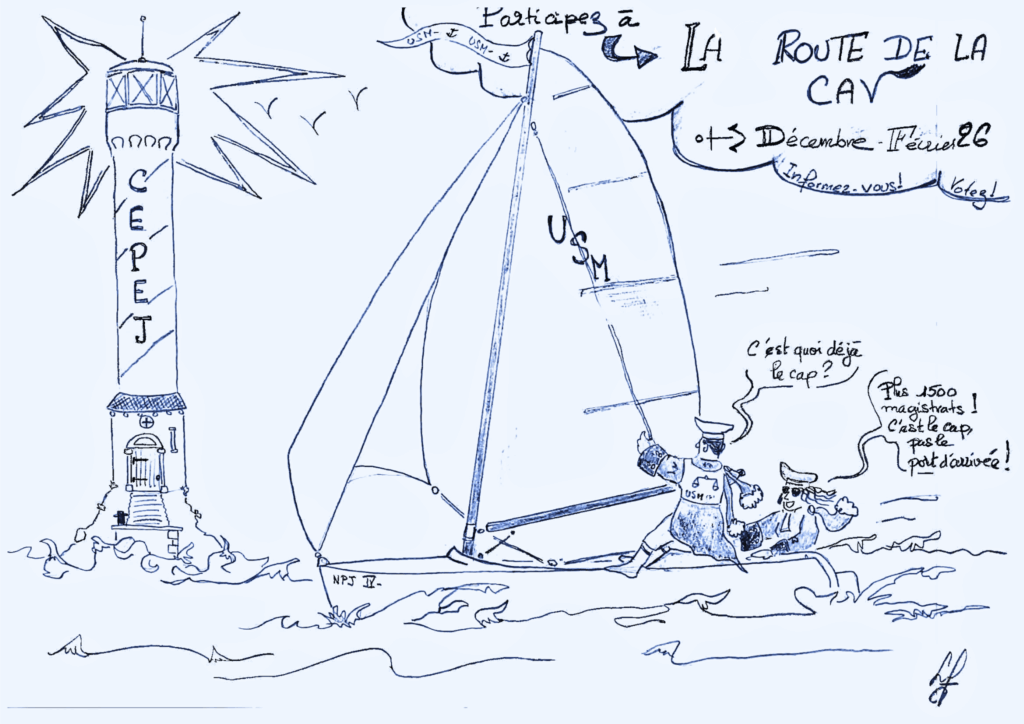 Participez à
LA ROUTE DE LA
CAV
Décembre - Février 26
Informez-vous!
Votez!
USM- USM-
CEPEJ
USM
C'est quoi déjà
le cap?
Plus 1500
magistrats!
C'est le cap,
pas le
port d'arrivée!
USM
NPJ IV-